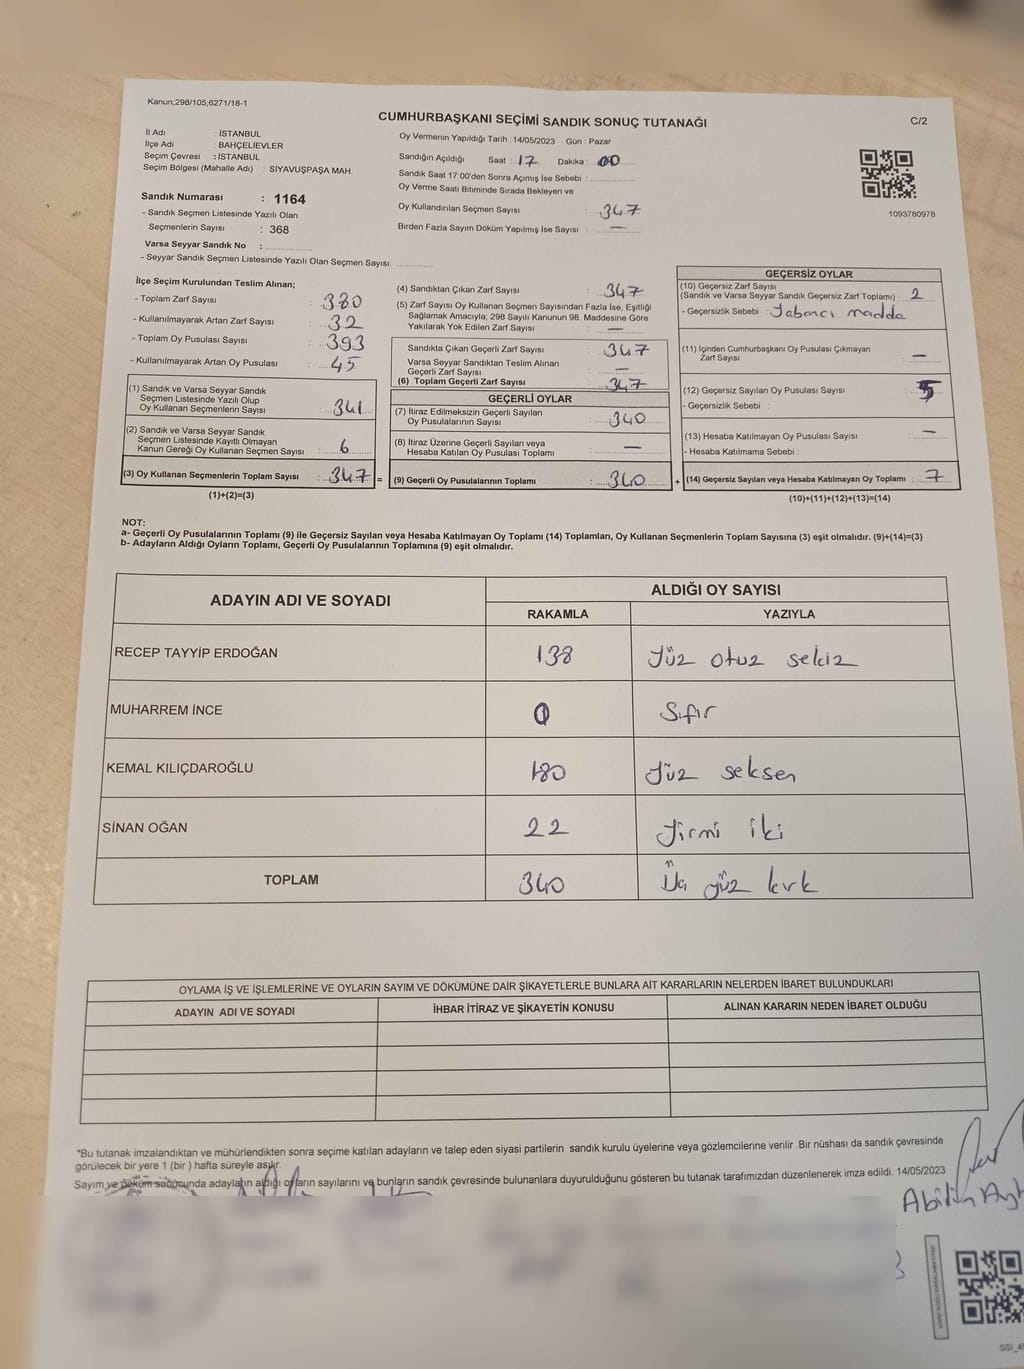 Kanun;298/105;6271/18-1
CUMHURBAŞKANI SEÇİMİ SANDIK SONUÇ TUTANAĞI
C/2
İl Adı : İSTANBUL
İlçe Adı : BAHÇELİEVLER
Seçim Çevresi : İSTANBUL
Seçim Bölgesi (Mahalle Adı) : SİYAVUŞPAŞA MAH.
Sandık Numarası : 1164
- Sandık Seçmen Listesinde Yazılı Olan
Seçmenlerin Sayısı : 368
Varsa Seyyar Sandık No :
- Seyyar Sandık Seçmen Listesinde Yazılı Olan Seçmen Sayısı:
Oy Vermenin Yapıldığı Tarih :14/05/2023 Gün : Pazar
Sandığın Açıldığı Saat : 17 Dakika : 00
Sandık Saat 17:00'den Sonra Açımış İse Sebebi :
Oy Verme Saati Bitiminde Sırada Bekleyen ve
Oy Kullandırılan Seçmen Sayısı : 347
Birden Fazla Sayım Döküm Yapılmış İse Sayısı : —
1093780978
İlçe Seçim Kurulundan Teslim Alınan;
- Toplam Zarf Sayısı : 380
- Kullanılmayarak Artan Zarf Sayısı : 32
- Toplam Oy Pusulası Sayısı : 393
- Kullanılmayarak Artan Oy Pusulası : 45
(1) Sandık ve Varsa Seyyar Sandık
Seçmen Listesinde Yazılı Olup
Oy Kullanan Seçmenlerin Sayısı : 341
(2) Sandık ve Varsa Seyyar Sandık
Seçmen Listesinde Kayıtlı Olmayan
Kanun Gereği Oy Kullanan Seçmen Sayısı : 6
(3) Oy Kullanan Seçmenlerin Toplam Sayısı : 347 =
(1)+(2)=(3)
(4) Sandıktan Çıkan Zarf Sayısı : 347
(5) Zarf Sayısı Oy Kullanan Seçmen Sayısından Fazla İse, Eşitliği
Sağlamak Amacıyla; 298 Sayılı Kanunun 98. Maddesine Göre
Yakılarak Yok Edilen Zarf Sayısı : —
Sandıkta Çıkan Geçerli Zarf Sayısı : 347
Varsa Seyyar Sandıktan Teslim Alınan
Geçerli Zarf Sayısı : —
(6) Toplam Geçerli Zarf Sayısı : 347
GEÇERLİ OYLAR
(7) İtiraz Edilmeksizin Geçerli Sayılan
Oy Pusulalarının Sayısı : 340
(8) İtiraz Üzerine Geçerli Sayılan veya
Hesaba Katılan Oy Pusulası Toplamı : —
(9) Geçerli Oy Pusulalarının Toplamı : 340 +
GEÇERSİZ OYLAR
(10) Geçersiz Zarf Sayısı
(Sandık ve Varsa Seyyar Sandık Geçersiz Zarf Toplamı) : 2
- Geçersizlik Sebebi : Yabancı madde
(11) İçinden Cumhurbaşkanı Oy Pusulası Çıkmayan
Zarf Sayısı : —
(12) Geçersiz Sayılan Oy Pusulası Sayısı : 5
- Geçersizlik Sebebi :
(13) Hesaba Katılmayan Oy Pusulası Sayısı : —
- Hesaba Katılmama Sebebi :
(14) Geçersiz Sayılan veya Hesaba Katılmayan Oy Toplamı : 7
(10)+(11)+(12)+(13)=(14)
NOT:
a- Geçerli Oy Pusulalarının Toplamı (9) ile Geçersiz Sayılan veya Hesaba Katılmayan Oy Toplamı (14) Toplamları, Oy Kullanan Seçmenlerin Toplam Sayısına (3) eşit olmalıdır. (9)+(14)=(3)
b- Adayların Aldığı Oyların Toplamı, Geçerli Oy Pusulalarının Toplamına (9) eşit olmalıdır.
ADAYIN ADI VE SOYADI
ALDIĞI OY SAYISI
RAKAMLA YAZIYLA
RECEP TAYYİP ERDOĞAN 138 Yüz otuz sekiz
MUHARREM İNCE 0 Sıfır
KEMAL KILIÇDAROĞLU 180 Yüz seksen
SİNAN OĞAN 22 Yirmi iki
TOPLAM 340 Üç yüz kırk
OYLAMA İŞ VE İŞLEMLERİNE VE OYLARIN SAYIM VE DÖKÜMÜNE DAİR ŞİKAYETLERLE BUNLARA AİT KARARLARIN NELERDEN İBARET BULUNDUKLARI
ADAYIN ADI VE SOYADI İHBAR İTİRAZ VE ŞİKAYETİN KONUSU ALINAN KARARIN NEDEN İBARET OLDUĞU
"Bu tutanak imzalandıktan ve mühürlendikten sonra seçime katılan adayların ve talep eden siyasi partilerin sandık kurulu üyelerine veya gözlemcilerine verilir .Bir nüshası da sandık çevresinde
görülecek bir yere 1 (bir ) hafta süreyle asılır.
Sayım ve döküm sonucunda adayların aldığı oyların sayılarını ve bunların sandık çevresinde bulunanlara duyurulduğunu gösteren bu tutanak tarafımızdan düzenlenerek imza edildi. 14/05/2023